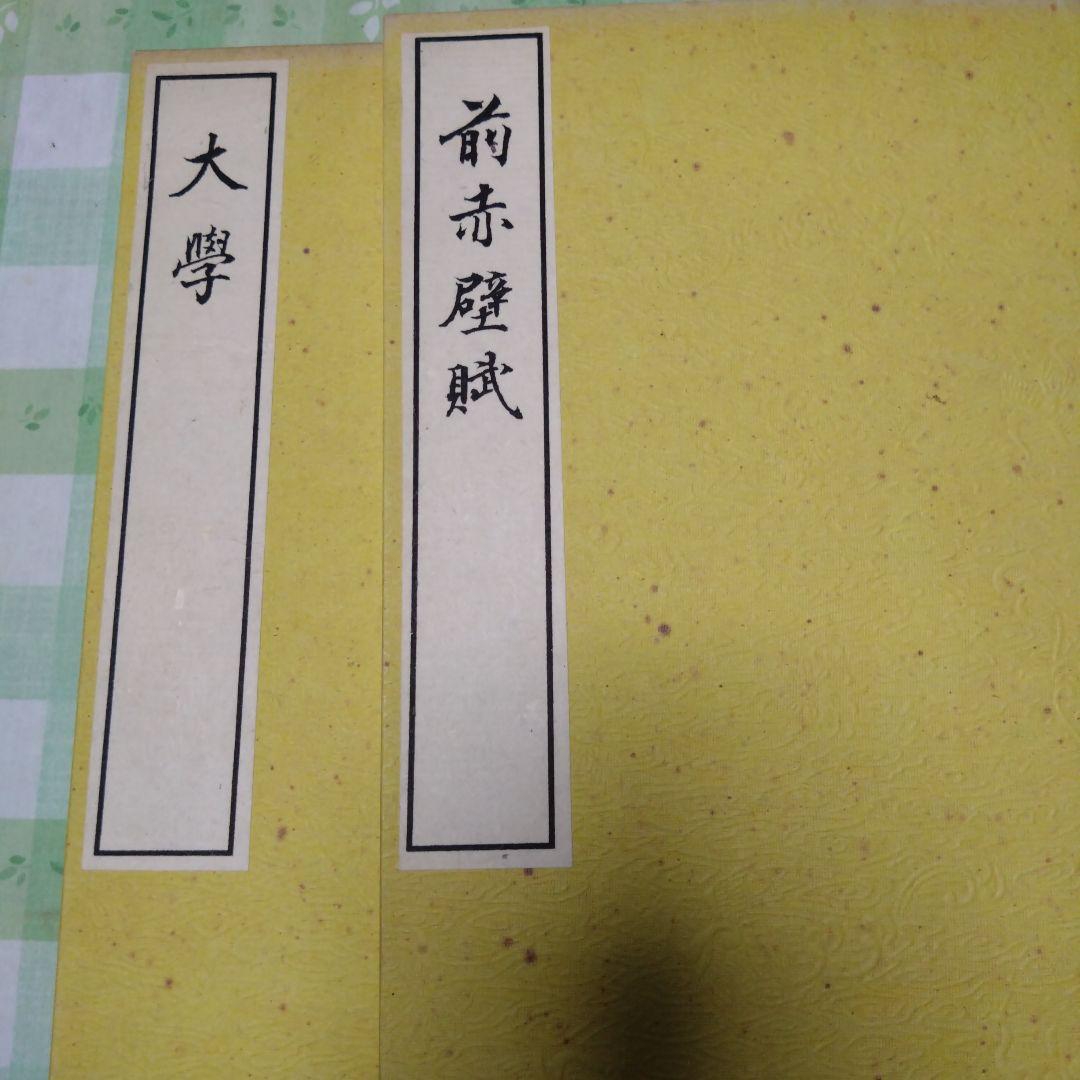 前赤壁賦
大學